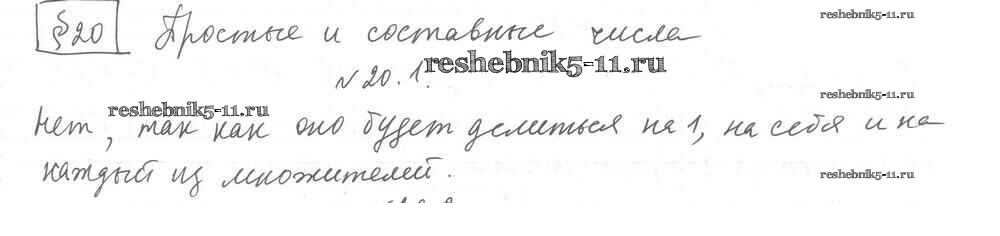 §20 Простые и составные числа
reshebnik5-11.ru
№20.1.
reshebnik5-11.ru
reshebnik5-11.ru
reshebnik5-11.ru
Нет, так как оно будет делиться на 1, на себя и на
каждый из множителей.
reshebnik5-11.ru